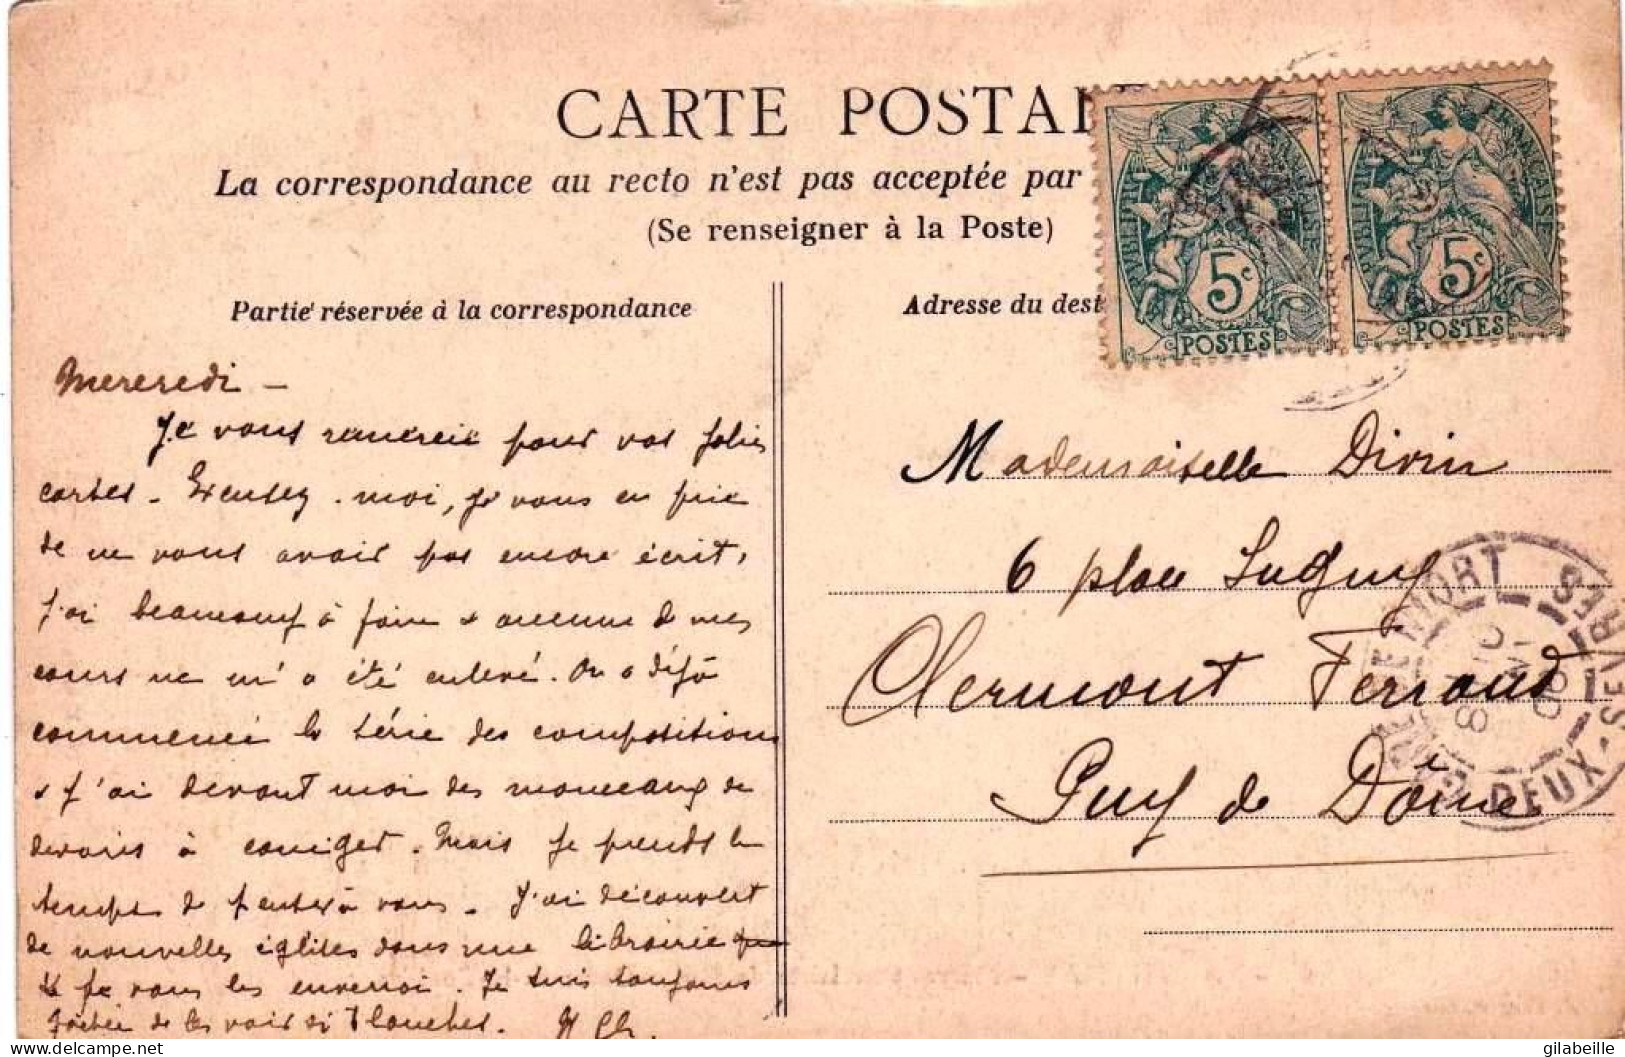 CARTE POSTAL
La correspondance au recto n'est pas acceptée par
(Se renseigner à la Poste)
Partie réservée à la correspondance
Adresse du dest
5c
POSTES
5c
POSTES
FRANÇAISE
Mercredi –
Je vous remercie pour vos jolies
cartes. Excusez-moi, je vous en prie
de ne vous avoir pas encore écrit,
j'ai beaucoup à faire & aucune de mes
cours ne m'a été enlevé. On a déjà
commencé la série des compositions
& j'ai devant moi des monceaux de
devoirs à corriger. Mais je prends le
temps de penser à vous. J'ai découvert
de nouvelles églises dans une librairie
& je vous les enverrai. Je suis toujours
fâchée de les voir si blanches.
Mademoiselle Divin
6 place
Clermont Ferrand
Puy de Dôme
NIORT
DEUX-SÈVRES
gilabeille